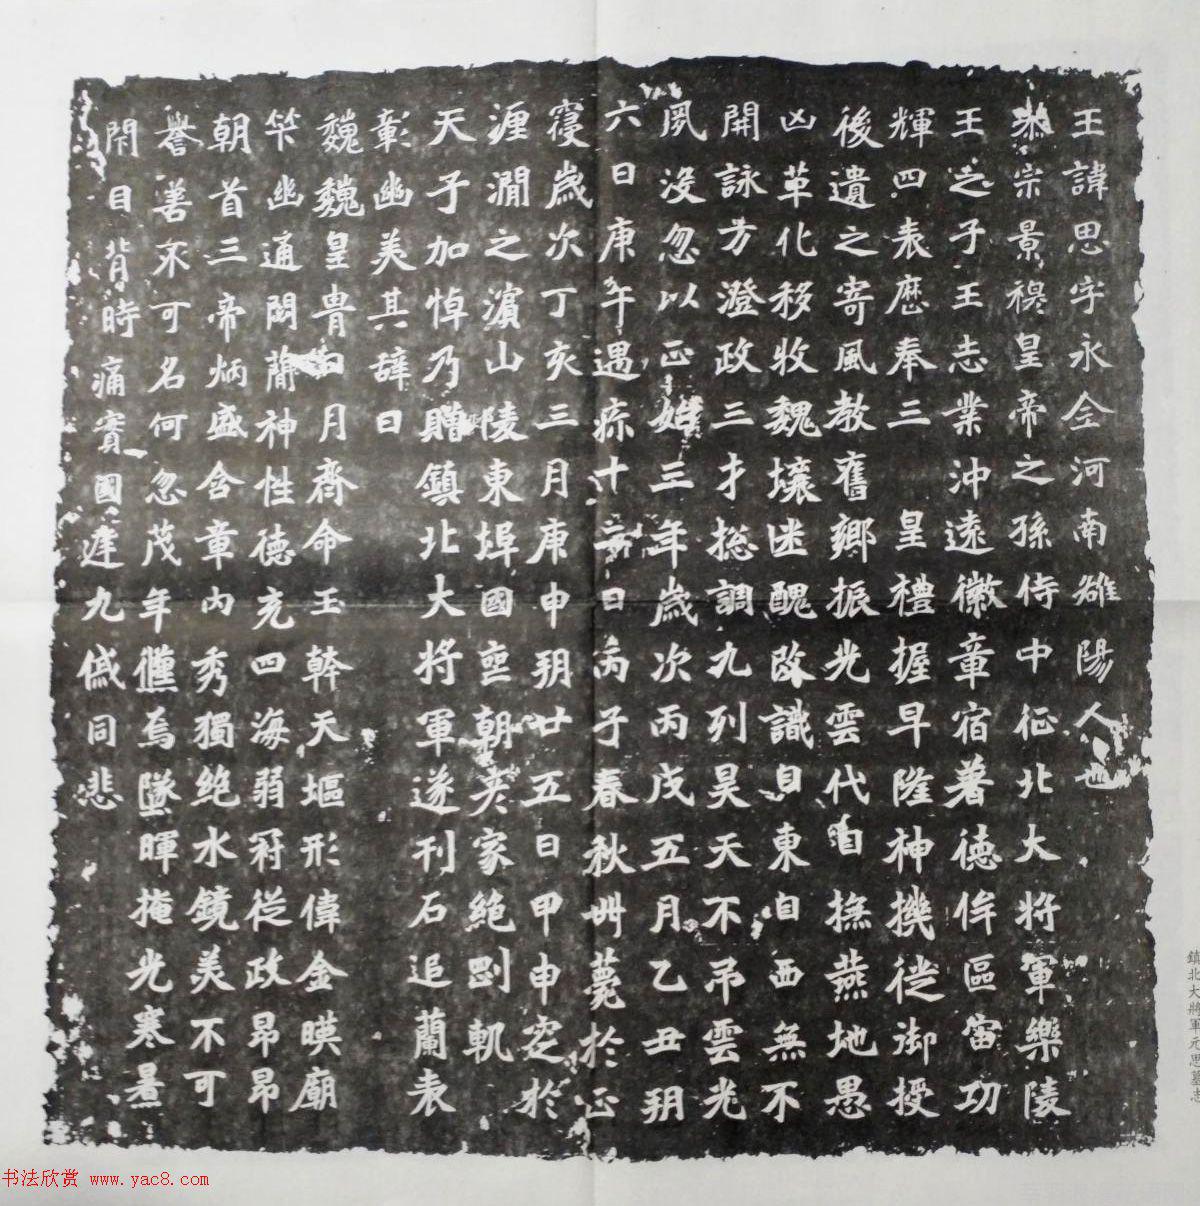 王諱思字永全河南雒陽人也
恭宗景穆皇帝之孫侍中征北大將軍樂陵
王之子王志業沖遠徽章宿著德侔區宙功
輝四表歷奉三皇禮握早隆神機從御授
後遺之寄風教舊鄉振光雲代自撫燕地愚
凶革化移牧魏壤迷醜改識自東自西無不
開詠方澄政三才摠調九列昊天不弔雲光
夙沒忽以正始三年歲次丙戌五月乙丑朔
六日庚午遇疹十二日丙子春秋卌薨於正
寢歲次丁亥三月庚申朔廿五日甲申窆於
瀍澗之濱山陵東埠國喪朝夫家絕剛軌
天子加悼乃贈鎮北大將軍遂刊石追蘭表
彰幽美其辭曰
魏魏皇胄日月齊命玉幹天堀形偉金暎廟
笇幽通閎蕳神性德充四海弱冠從政昂昂
朝首三帝炳盛含章內秀獨絕水鏡美不可
譽善不可名何忽茂年儛焉墜暉掩光寒晷
閇目背時痛實國遑九戚同悲
鎮北大將軍元思墓志
书法欣赏 www.yac8.com